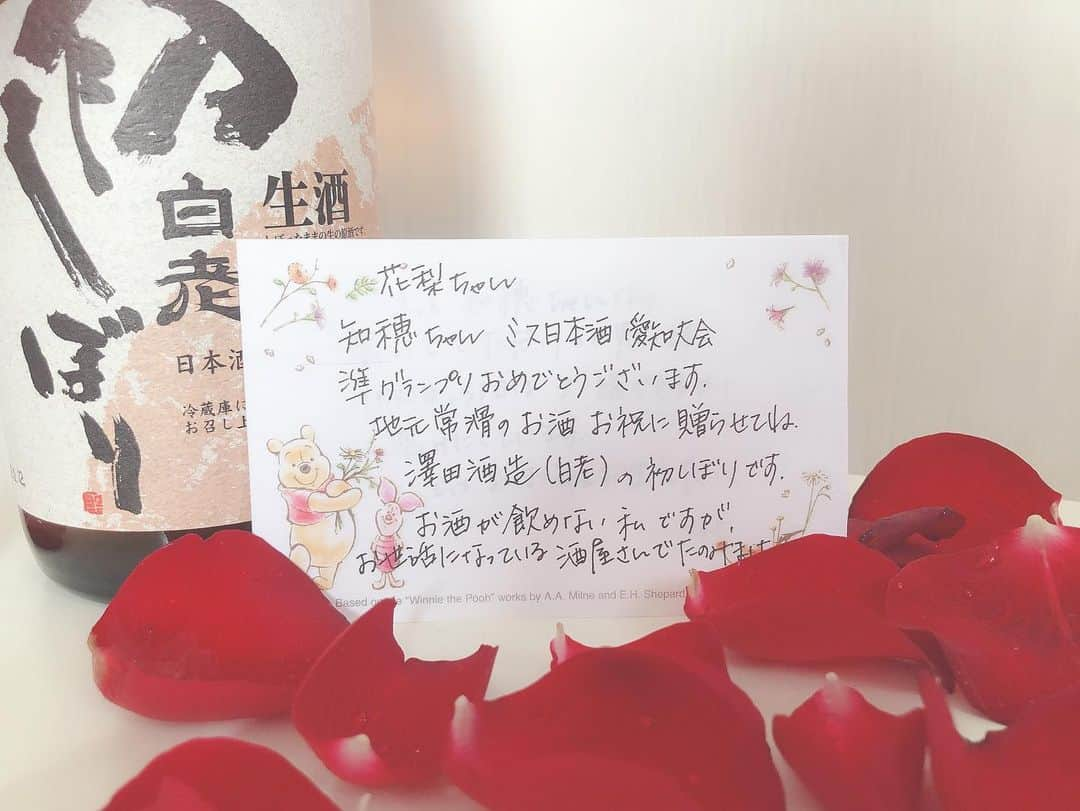 初しぼり
白老
生酒
日本酒
冷蔵庫に
お召し上
花梨ちゃん
知穂ちゃん ミス日本酒 愛知大会
準グランプリおめでとうございます.
地元常滑のお酒 お祝に贈らせてね.
澤田酒造(白老)の初しぼりです.
お酒が飲めない私ですが,
お世話になっている酒屋さんでたのみました
Based on the "Winnie the Pooh" works by A.A. Milne and E.H. Shepard